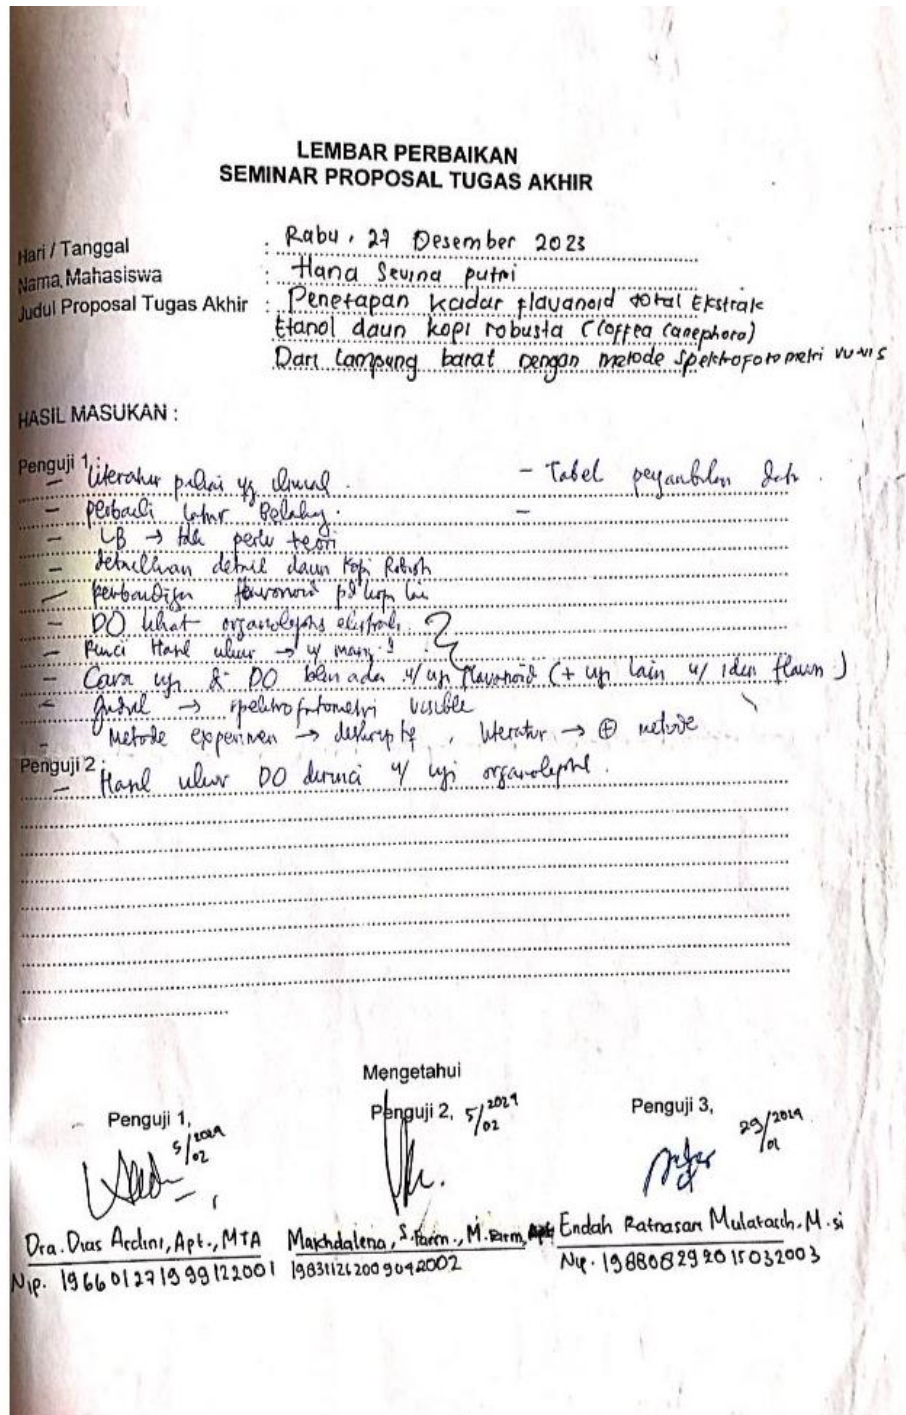 LEMBAR PERBAIKAN
SEMINAR PROPOSAL TUGAS AKHIR
Hari / Tanggal : Rabu, 27 Desember 2023
Nama Mahasiswa : Hana Sevina putri
Judul Proposal Tugas Akhir : Penetapan kadar flavanoid total Ekstrak
Etanol daun kopi robusta (Coffea canephora)
Dari Lampung barat Dengan metode Spektrofotometri
HASIL MASUKAN :
Penguji 1 :
- Literatur yg - Tabel pengambilan data
- perbaiki latar Belakang.
- LB → tdk perlu teori
- detail daun kopi Robusta
- perbandingan flavonoid kopi lain
- DO lihat organoleptis ekstrak
- Hasil ukur →
- Cara uji & DO blm ada u/ uji flavonoid (+ uji lain u/ iden flavon)
- Judul → spektrofotometri visible
- Metode experimen → , literatur → ⊕ metode
Penguji 2 :
- Hasil ukur DO dirinci u/ uji organoleptis.
Mengetahui
Penguji 1, Penguji 2, Penguji 3,
5/02 5/02 29/01
Dra. Dias Ardini, Apt., MTA Makhdalena, S.Farm., M.Farm, Apt Endah Ratnasari Mulatasih, M.si
Nip. 196601271999122001 198311262009042002 Nip. 198808292015032003